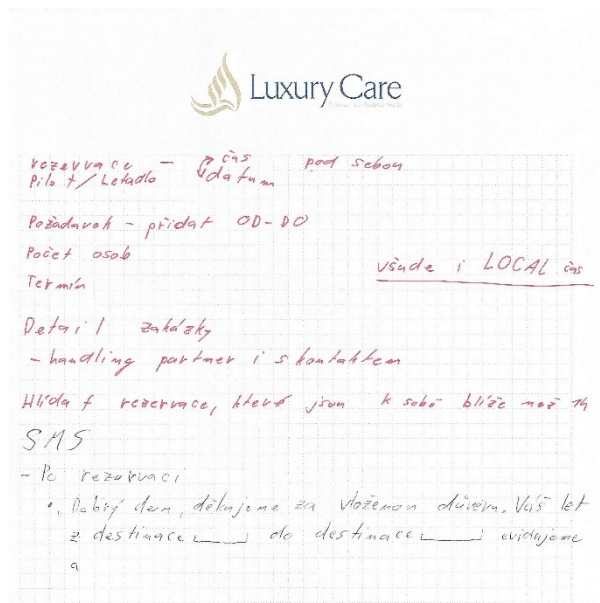 Luxury Care
rezervace – čas pod sebou
Pilot/Letadlo datum
Požadavek – přidat OD-DO
Počet osob
všude i LOCAL čas
Termín
Detail zakázky
– handling partner i s kontaktem
Hlídat rezervace, které jsou k sobě blíže než 1h
SMS
– Po rezervaci
• Dobrý den, děkujeme za vloženou důvěru. Váš let
z destinace do destinace evidujeme
a